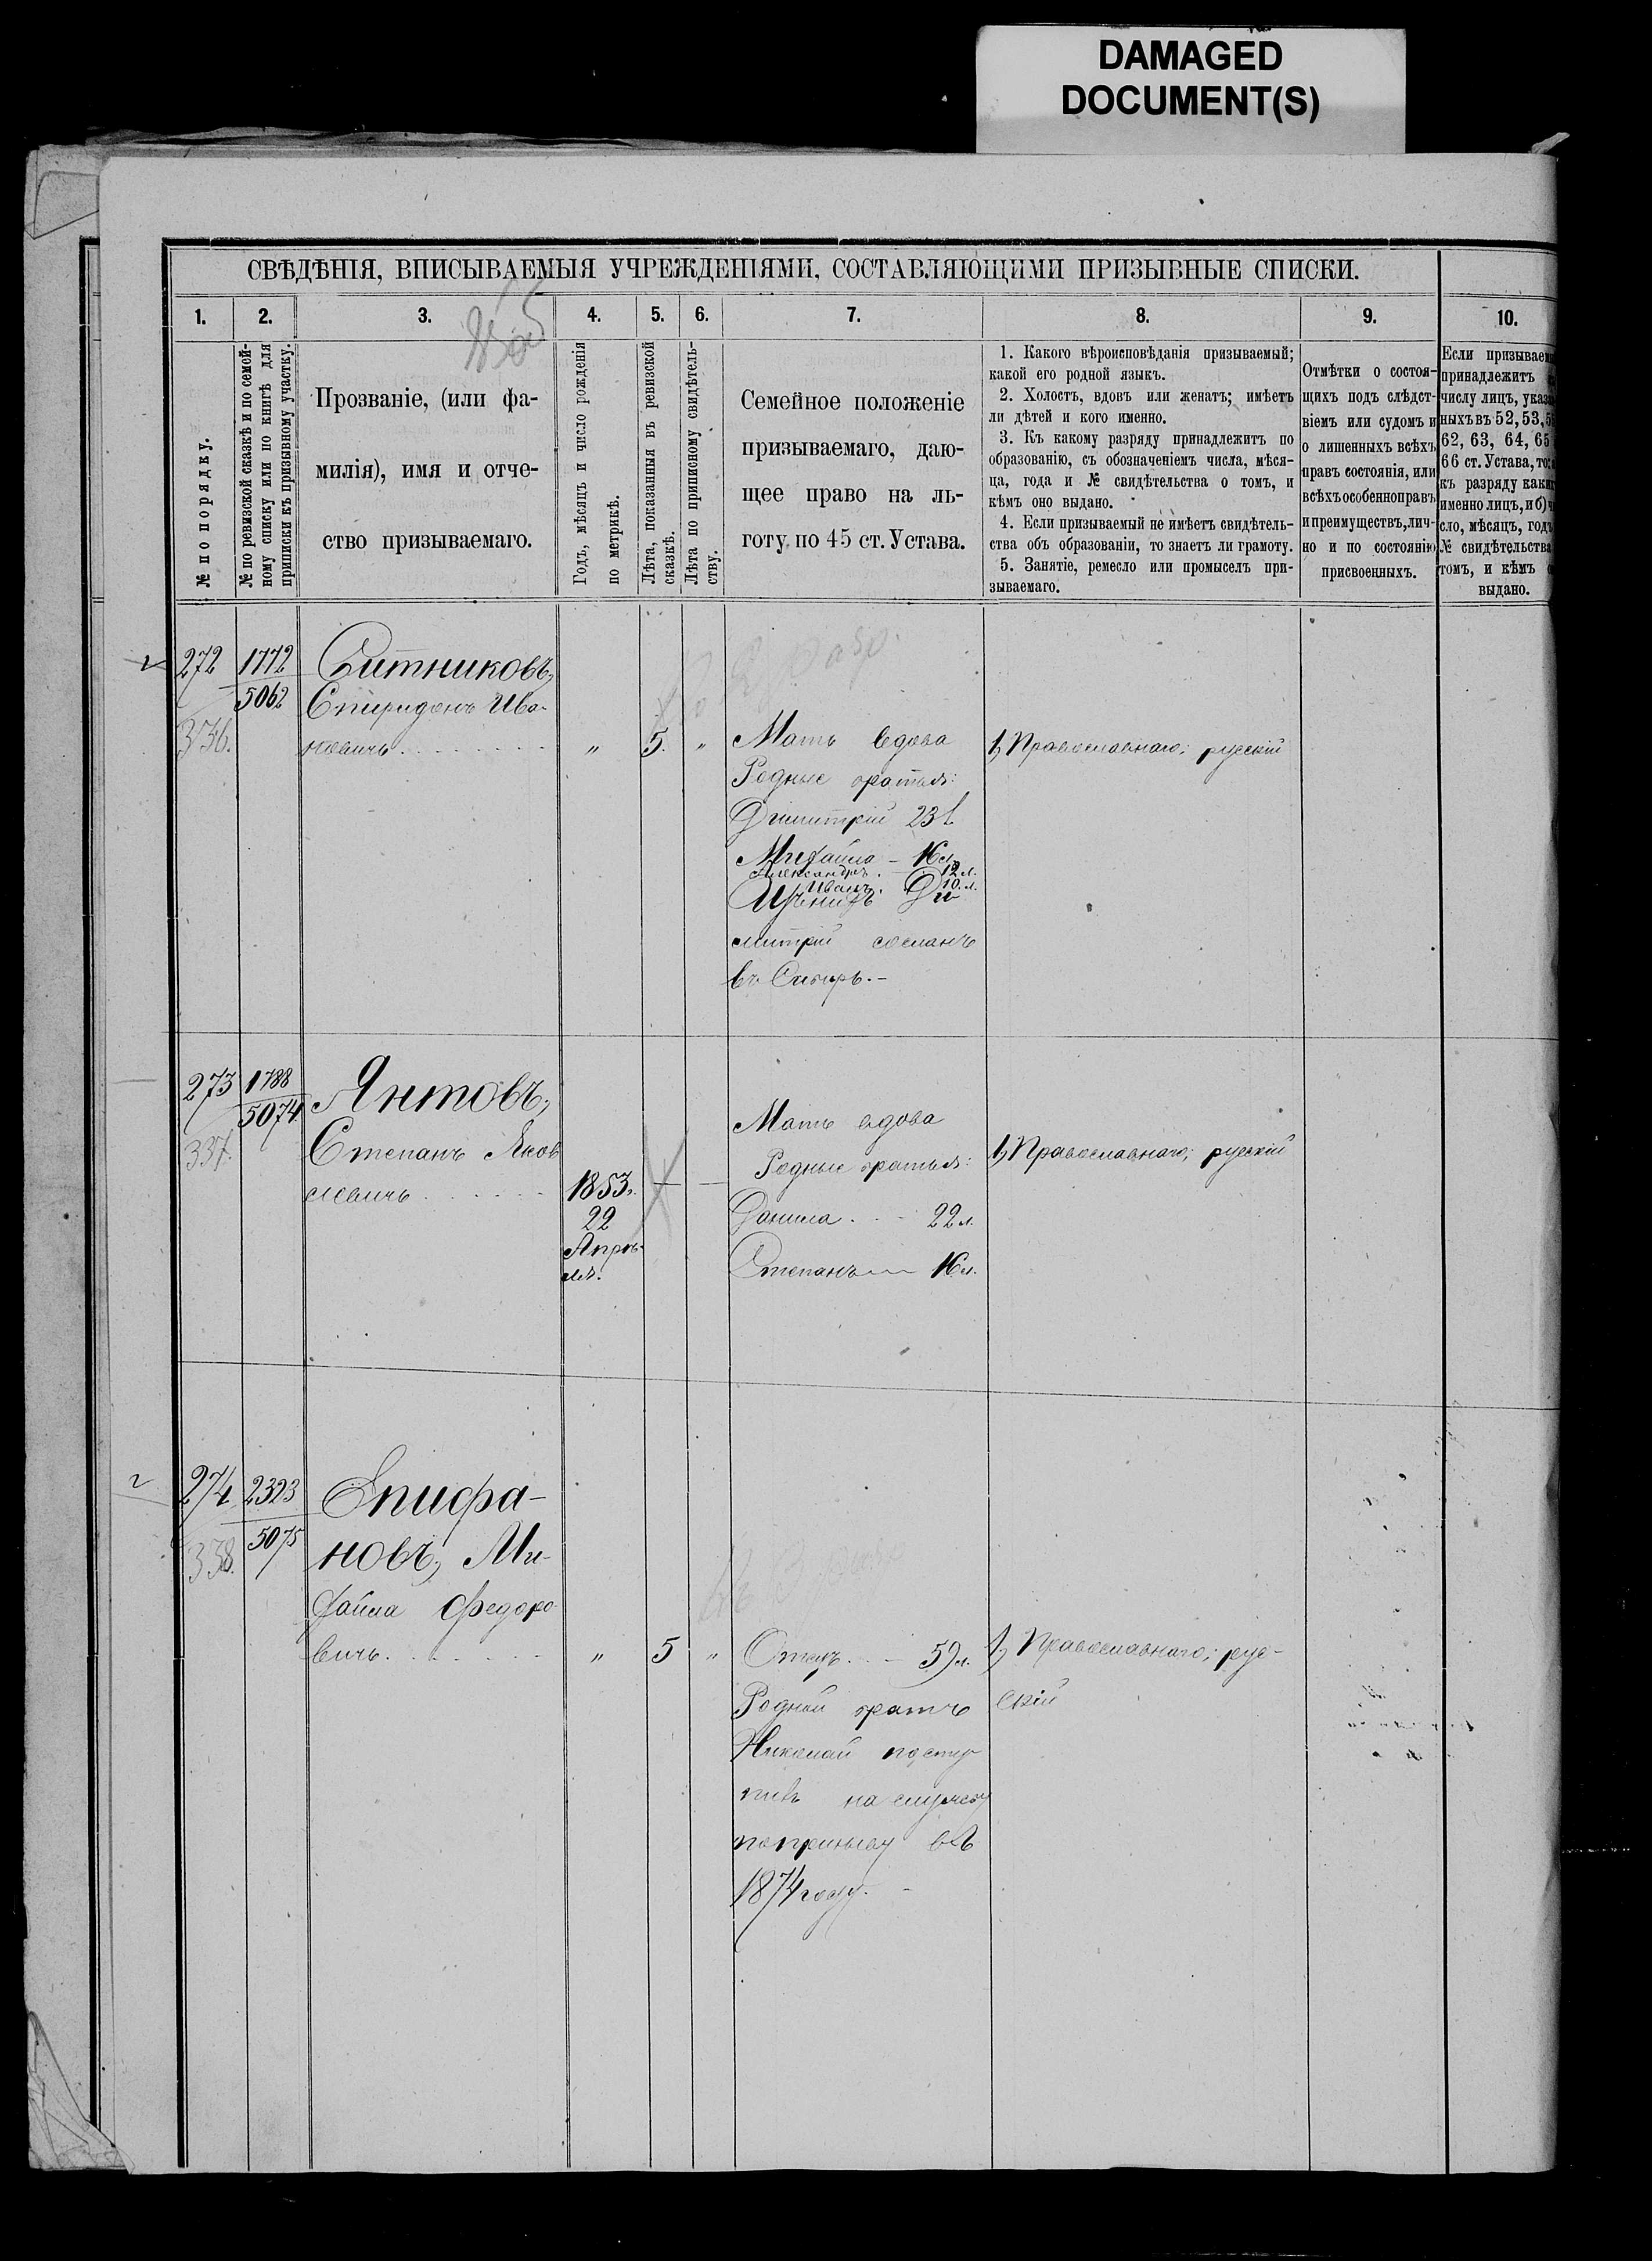 DAMAGED
DOCUMENT(S)
СВѢДѢНІЯ, ВПИСЫВАЕМЫЯ УЧРЕЖДЕНІЯМИ, СОСТАВЛЯЮЩИМИ ПРИЗЫВНЫЕ СПИСКИ.
1. 2. 3. 4. 5. 6. 7. 8. 9. 10.
№ по порядку.
№ по ревизской сказкѣ и по семей-
ному списку или по книгѣ для
приписки къ призывному участку.
Прозваніе, (или фа-
милія), имя и отче-
ство призываемаго.
Годъ, мѣсяцъ и число рожденія
по метрикѣ.
Лѣта, показанныя въ ревизской
сказкѣ.
Лѣта по приписному свидѣтель-
ству.
Семейное положеніе
призываемаго, даю-
щее право на ль-
готу по 45 ст. Устава.
1. Какого вѣроисповѣданія призываемый;
какой его родной языкъ.
2. Холостъ, вдовъ или женатъ; имѣетъ
ли дѣтей и кого именно.
3. Къ какому разряду принадлежитъ по
образованію, съ обозначеніемъ числа, мѣся-
ца, года и № свидѣтельства о томъ, и
кѣмъ оно выдано.
4. Если призываемый не имѣетъ свидѣтель-
ства объ образованіи, то знаетъ ли грамоту.
5. Занятіе, ремесло или промыселъ при-
зываемаго.
Отмѣтки о состоя-
щихъ подъ слѣдст-
віемъ или судомъ и
о лишенныхъ всѣхъ
правъ состоянія, или
всѣхъ особенно правъ
и преимуществъ, лич-
но и по состоянію
присвоенныхъ.
Если призываем
принадлежитъ
числу лицъ, указа
ныхъ въ 52, 53, 5
62, 63, 64, 65
66 ст. Устава, то:
къ разряду каки
именно лицъ, и б) ч
сло, мѣсяцъ, годъ
№ свидѣтельства
томъ, и кѣмъ о
выдано.
272
336.
1772
5062
Ситниковъ,
Спиридонъ Ива-
новичъ
„ 5. „
Мать вдова
Родные братья:
Димитрій 23 л
Михайла - 16 л.
Александръ. 12 л.
Иванъ. 10 л.
Ди
митрій сосланъ
въ Сибирь.-
1, Православнаго; русскій
273
337.
1788
5074.
Янтовъ,
Степанъ Яков
левичъ
1853.
22
Апрѣ-
ля.
Мать вдова
Родные братья:
Данила 22 л.
Степанъ 16 л.
1, Православнаго; русскій
274
338.
2323
5075
Епифа-
новъ, Ми-
хайла Федоро-
вичъ.
„ 5 „
Отецъ. - 59 л.
Родной братъ
Николай посту-
пилъ на службу
по призыву въ
1874 году. -
1, Православнаго; рус-
скій